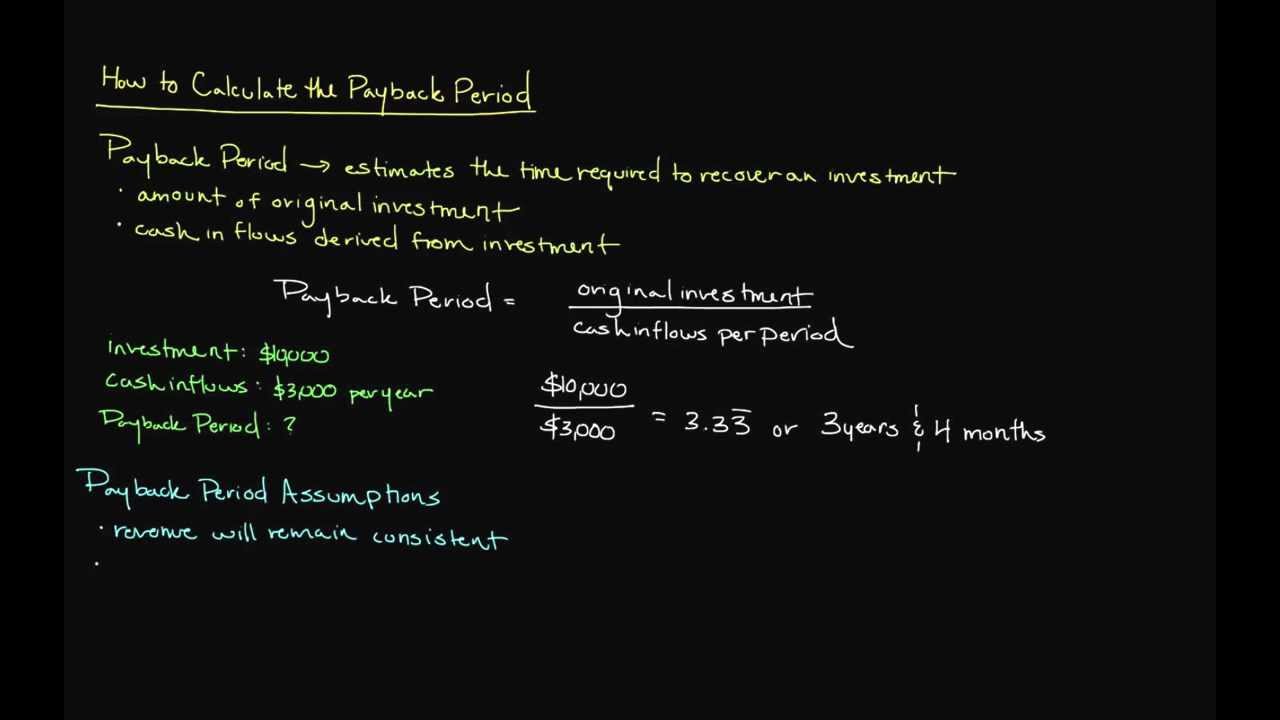 How to Calculate the Payback Period
Payback Period → estimates the time required to recover an investment
· amount of original investment
· cash inflows derived from investment
Payback Period = original investment
cash inflows per period
investment: $10,000
cash inflows: $3,000 per year
Payback Period: ?
$10,000
$3,000
= 3.33̅ or 3 years & 4 months
Payback Period Assumptions
· revenue will remain consistent
·